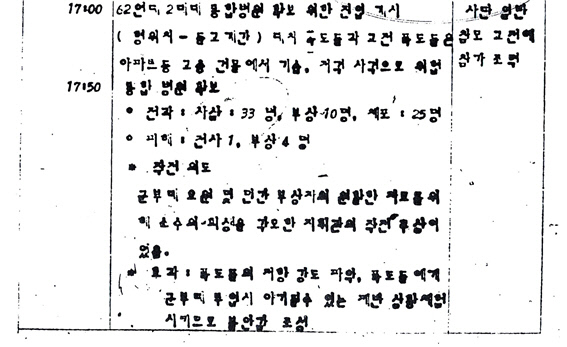 17:00 62연대 2대대 통합병원 확보 위한 진입 개시 사단 일반
( 형위치 - 돌고개간 ) 대치 폭도들과 교전 폭도들은 참모 교전에
아파트등 고층 건물에서 기습, 저격 사격으로 위협 참가 조력
17:50 통합 병원 확보
• 전과 : 사살 : 33 명, 부상 10명, 체포 : 25명
• 피해 : 전사 1, 부상 4 명
* 작전 의도
군부대 요원 및 민간 부상자의 원활한 치료를위
해 손수의 희생을 감오한 지휘관의 작전 구상이
있음.
* 효과 : 폭도들의 저항 강도 파악, 폭도들에게
군부대 투입시 야기될수 있는 제반 상황 예업
시키므로 불안감 조성